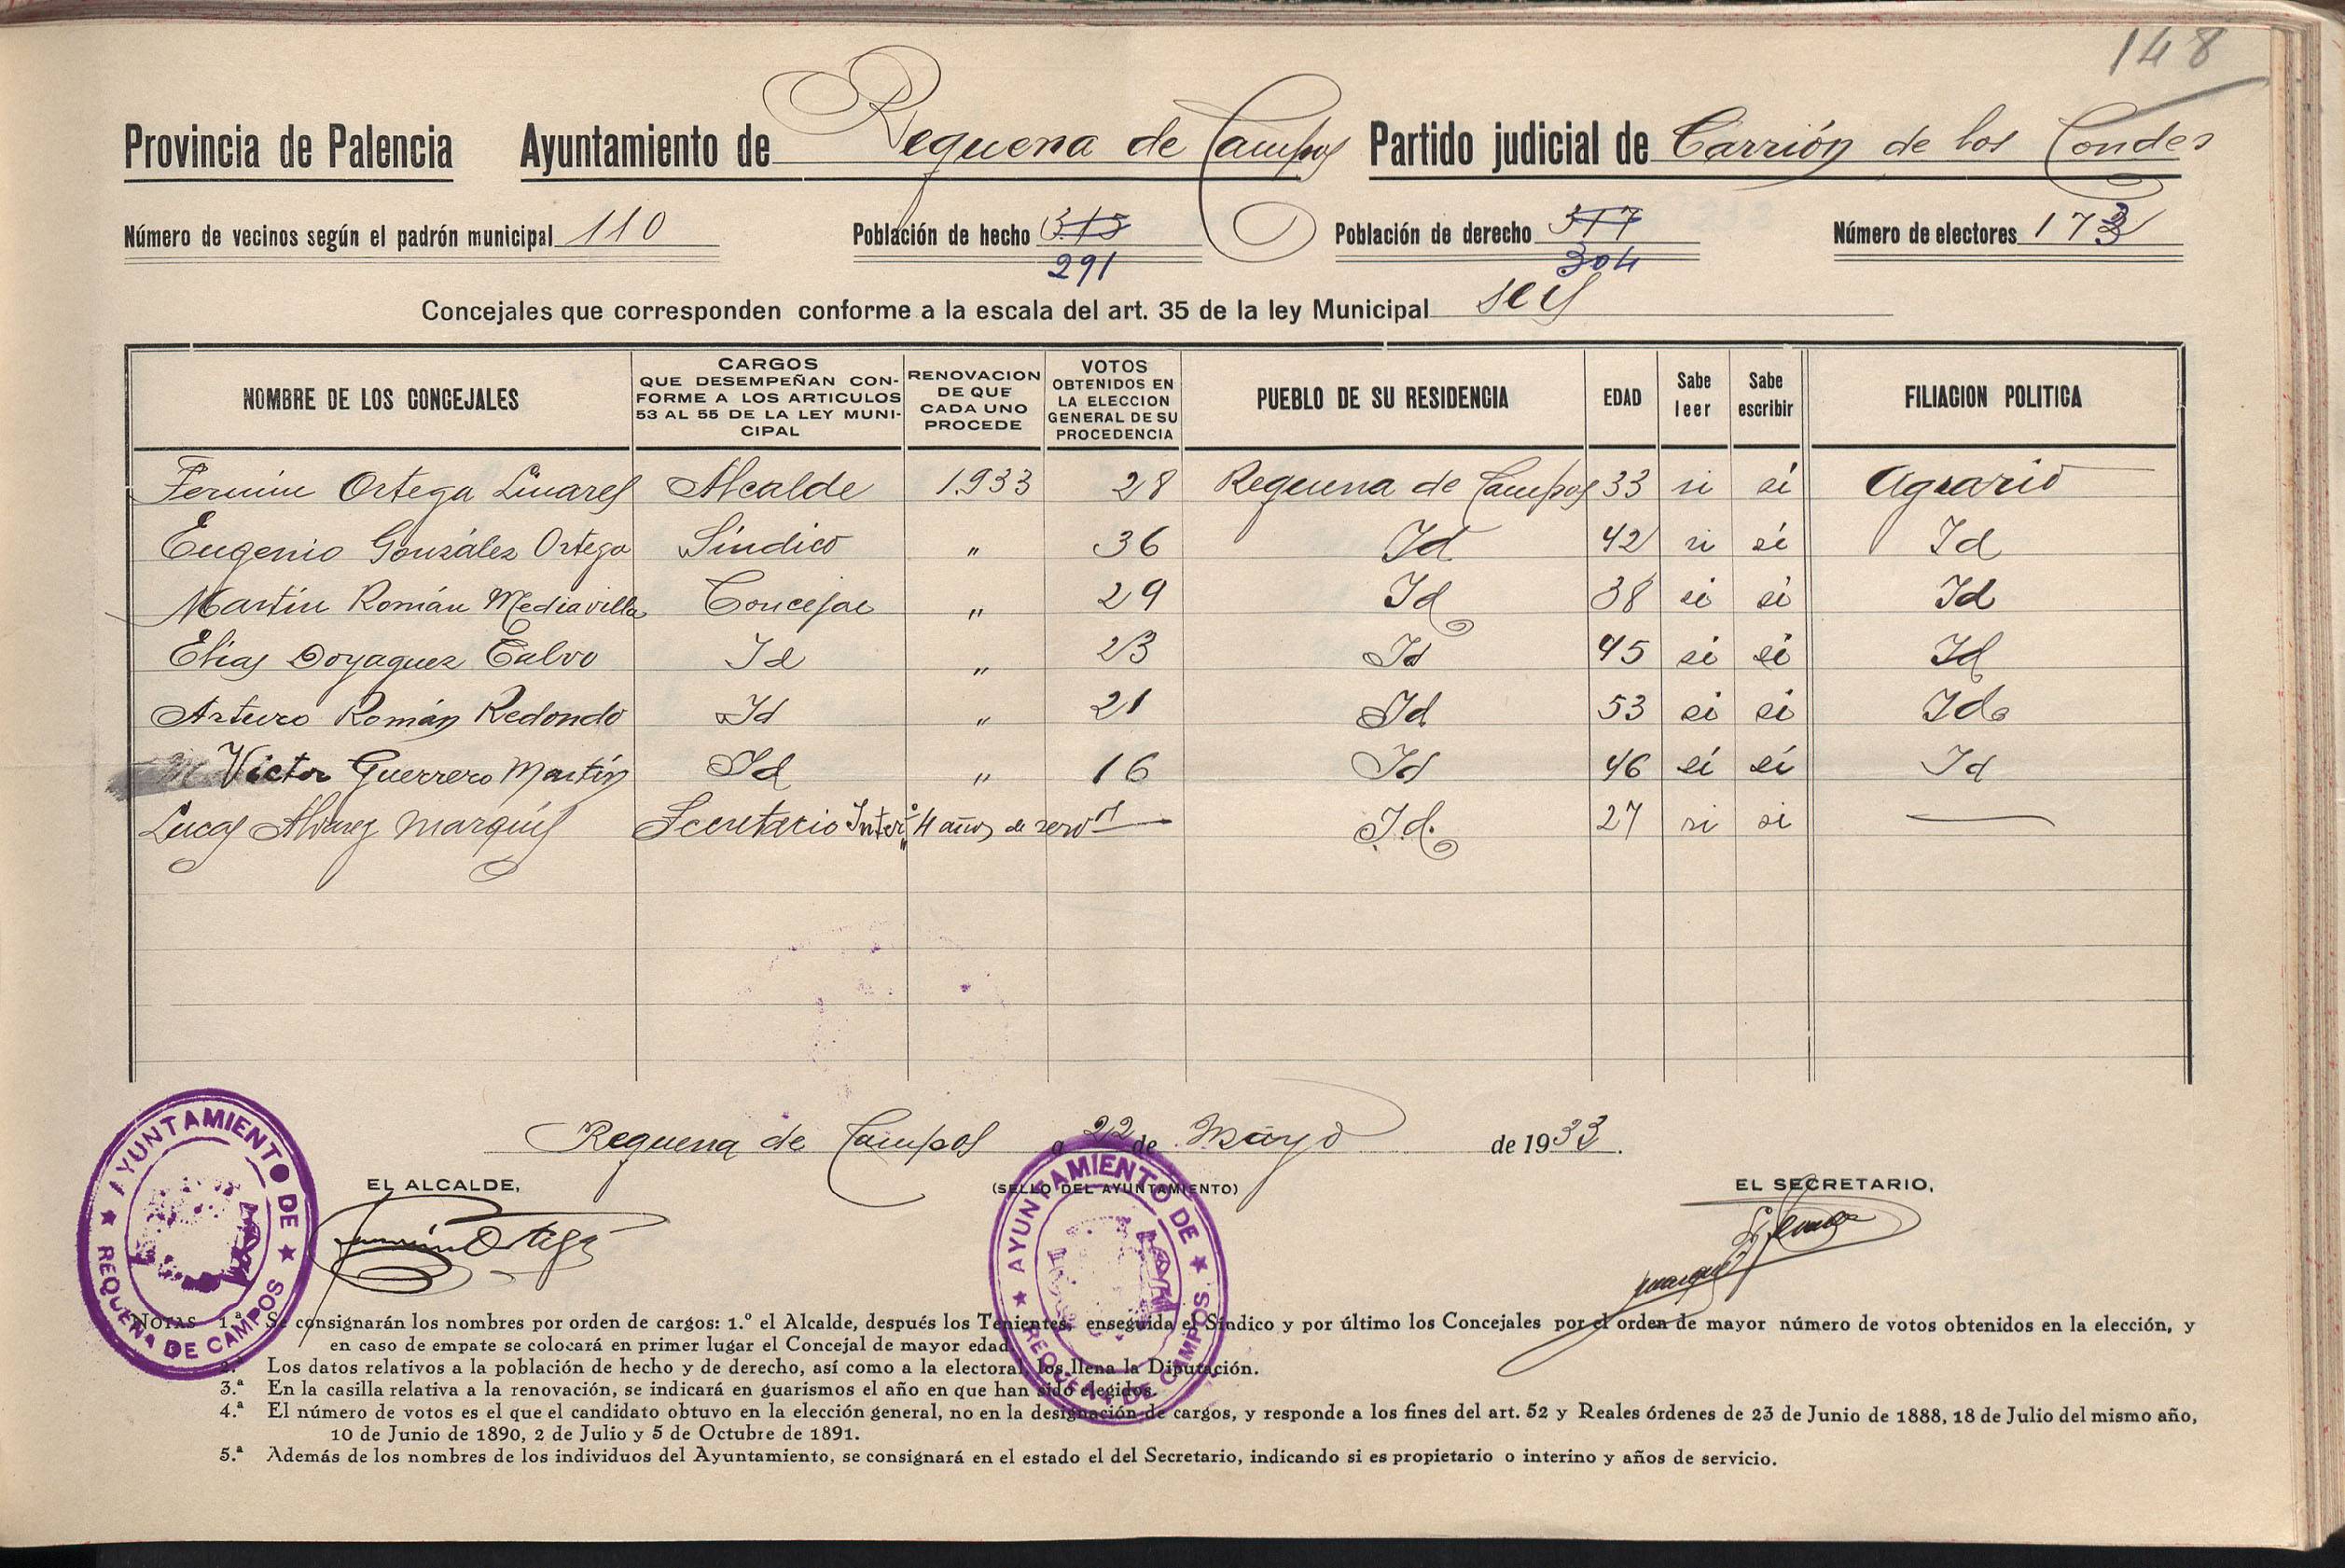 148
Provincia de Palencia Ayuntamiento de Requena de Campos Partido judicial de Carrión de los Condes
Número de vecinos según el padrón municipal 110 Población de hecho 315 Población de derecho 317 Número de electores 173
291 304
Concejales que corresponden conforme a la escala del art. 35 de la ley Municipal seis
NOMBRE DE LOS CONCEJALES CARGOS QUE DESEMPEÑAN CON- FORME A LOS ARTICULOS 53 AL 55 DE LA LEY MUNI- CIPAL RENOVACION DE QUE CADA UNO PROCEDE VOTOS OBTENIDOS EN LA ELECCION GENERAL DE SU PROCEDENCIA PUEBLO DE SU RESIDENCIA EDAD Sabe leer Sabe escribir FILIACION POLITICA
Fermin Ortega Linares Alcalde 1.933 28 Requena de Campos 33 si sí Agrario
Eugenio González Ortega Síndico " 36 Id 42 si sí Id
Martín Román Mediavilla Concejal " 29 Id 38 si si Id
Elias Doyaguez Calvo Id " 23 Id 45 si si Id
Arturo Román Redondo Id " 21 Id 53 si si Id.
Victor Guerrero Martín Id " 16 Id 46 sí sí Id
Lucas Alvarez Marqués Secretario Inter.º 4 años de serv.º — I.d. 27 si si —
Requena de Campos a 22 de Mayo de 1933.
EL ALCALDE, (SELLO DEL AYUNTAMIENTO) EL SECRETARIO,
Fermin Ortega
AYUNTAMIENTO DE ★ REQUENA DE CAMPOS ★
AYUNTAMIENTO DE ★ REQUENA DE CAMPOS ★
NOTAS 1.ª Se consignarán los nombres por orden de cargos: 1.º el Alcalde, después los Tenientes, enseguida el Síndico y por último los Concejales por el orden de mayor número de votos obtenidos en la elección, y
en caso de empate se colocará en primer lugar el Concejal de mayor edad.
2.ª Los datos relativos a la población de hecho y de derecho, así como a la electoral, los llena la Diputación.
3.ª En la casilla relativa a la renovación, se indicará en guarismos el año en que han sido elegidos.
4.ª El número de votos es el que el candidato obtuvo en la elección general, no en la designación de cargos, y responde a los fines del art. 52 y Reales órdenes de 23 de Junio de 1888, 18 de Julio del mismo año,
10 de Junio de 1890, 2 de Julio y 5 de Octubre de 1891.
5.ª Además de los nombres de los individuos del Ayuntamiento, se consignará en el estado el del Secretario, indicando si es propietario o interino y años de servicio.